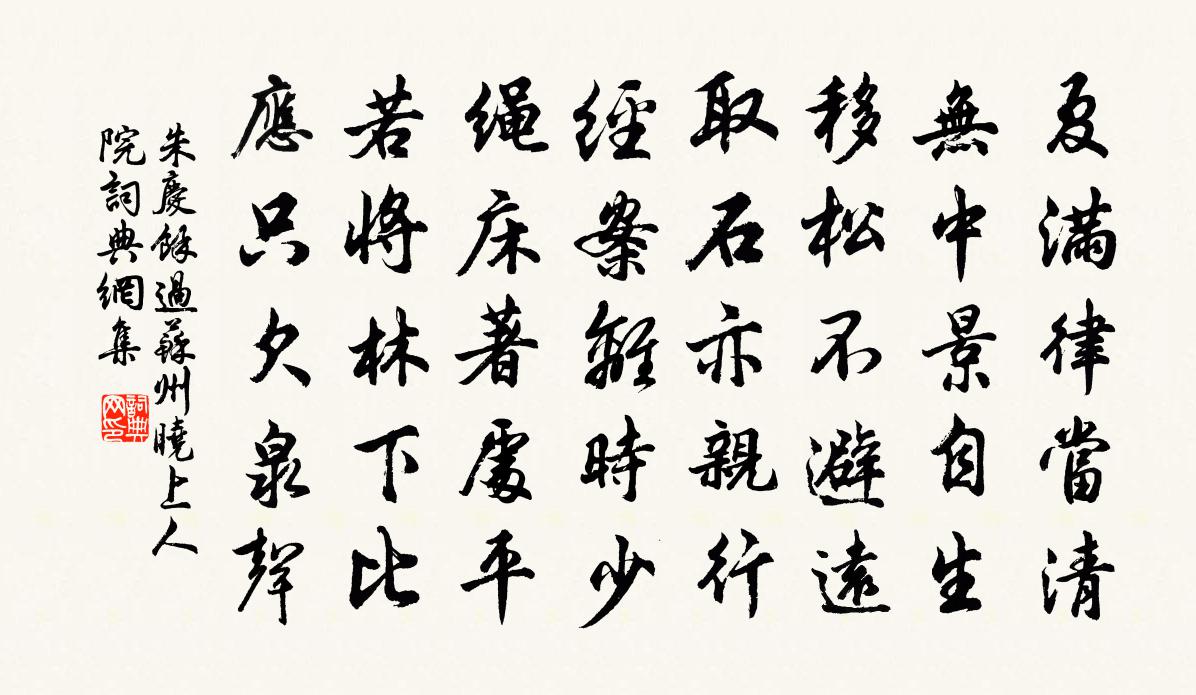 夏滿律當清
無中景自生
移松不避遠
取石亦親行
經案離時少
繩床著處平
若將林下比
應只欠泉聲
朱慶餘過蘇州曉上人
院詞典網集
詞典網印